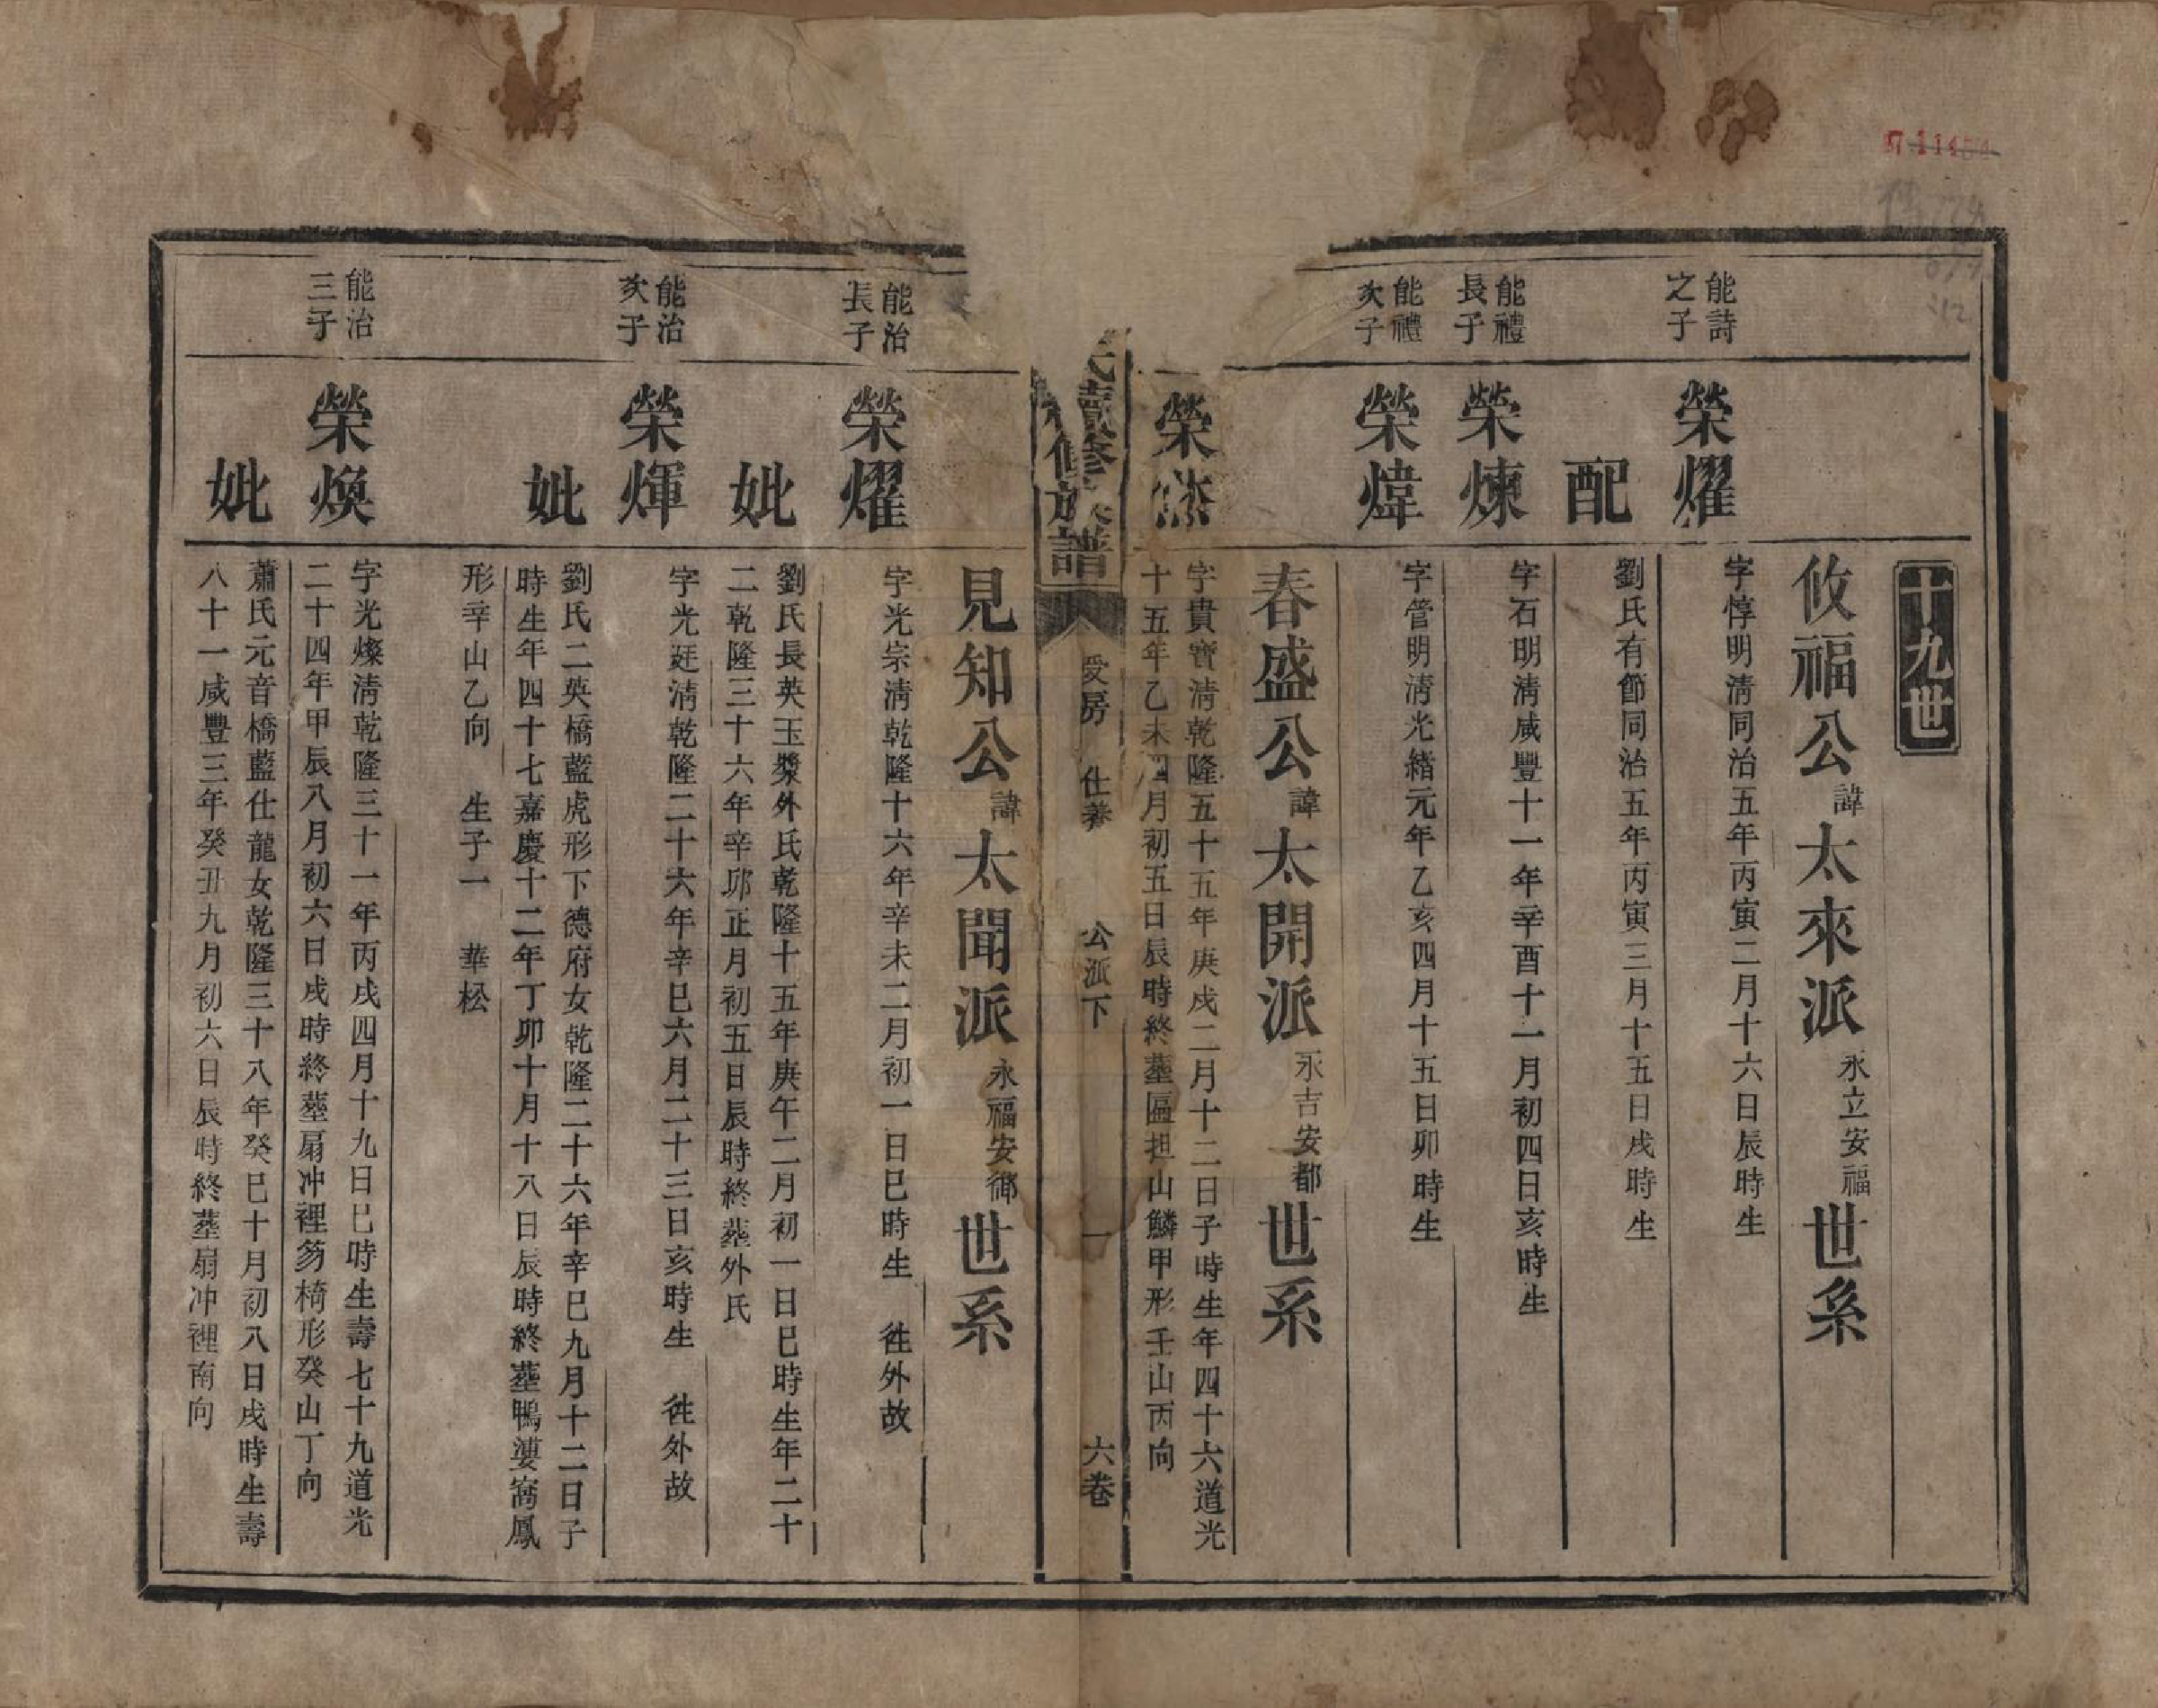 十九世
攸福公諱太來派永立安福世系
能詩之子
榮燿
字惇明清同治五年丙寅二月十六日辰時生
配
劉氏有節同治五年丙寅三月十五日戌時生
能禮長子
榮煉
字石明清咸豐十一年辛酉十一月初四日亥時生
能禮次子
榮煒
字管明清光緒元年乙亥四月十五日卯時生
春盛公諱太開派永吉安都世系
榮
字貴寶清乾隆五十五年庚戌二月十二日子時生年四十六道光
十五年乙未四月初五日辰時終塟區担山鱗甲形壬山丙向
氏續修族譜
受房 仕養 公派下 一 六卷
見知公諱太聞派永福安鄉世系
能治長子
榮燿
字光宗清乾隆十六年辛未二月初一日巳時生 徃外故
妣
劉氏長英玉漿外氏乾隆十五年庚午二月初一日巳時生年二十
二乾隆三十六年辛卯正月初五日辰時終塟外氏
能治次子
榮煇
字光廷清乾隆二十六年辛巳六月二十三日亥時生 徃外故
妣
劉氏二英橋藍虎形下德府女乾隆二十六年辛巳九月十二日子
時生年四十七嘉慶十二年丁卯十月十八日辰時終塟鴨漊窩鳳
形辛山乙向 生子一 華松
能治三子
榮煥
字光燦清乾隆三十一年丙戌四月十九日巳時生壽七十九道光
二十四年甲辰八月初六日戌時終塟扇冲裡芴椅形癸山丁向
妣
蕭氏元音橋藍仕龍女乾隆三十八年癸巳十月初八日戌時生壽
八十一咸豐三年癸丑九月初六日辰時終塟扇冲裡南向